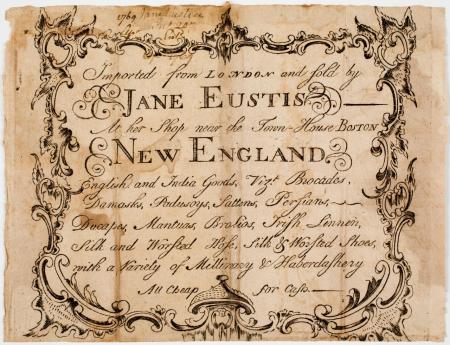 1769 Jane Eustice
Imported from LONDON and sold by
JANE EUSTIS
At her Shop near the Town-House BOSTON
NEW ENGLAND.
English and India Goods, Vizt. Brocades,
Damasks, Padusoys, Sattens, Persians,
Ducapes, Mantuas, Bralios, Irish Linnen,
Silk and Worsted Hose, Silk & Worsted Shoes,
with a Variety of Millenary & Haberdashery
All Cheap for Cash.